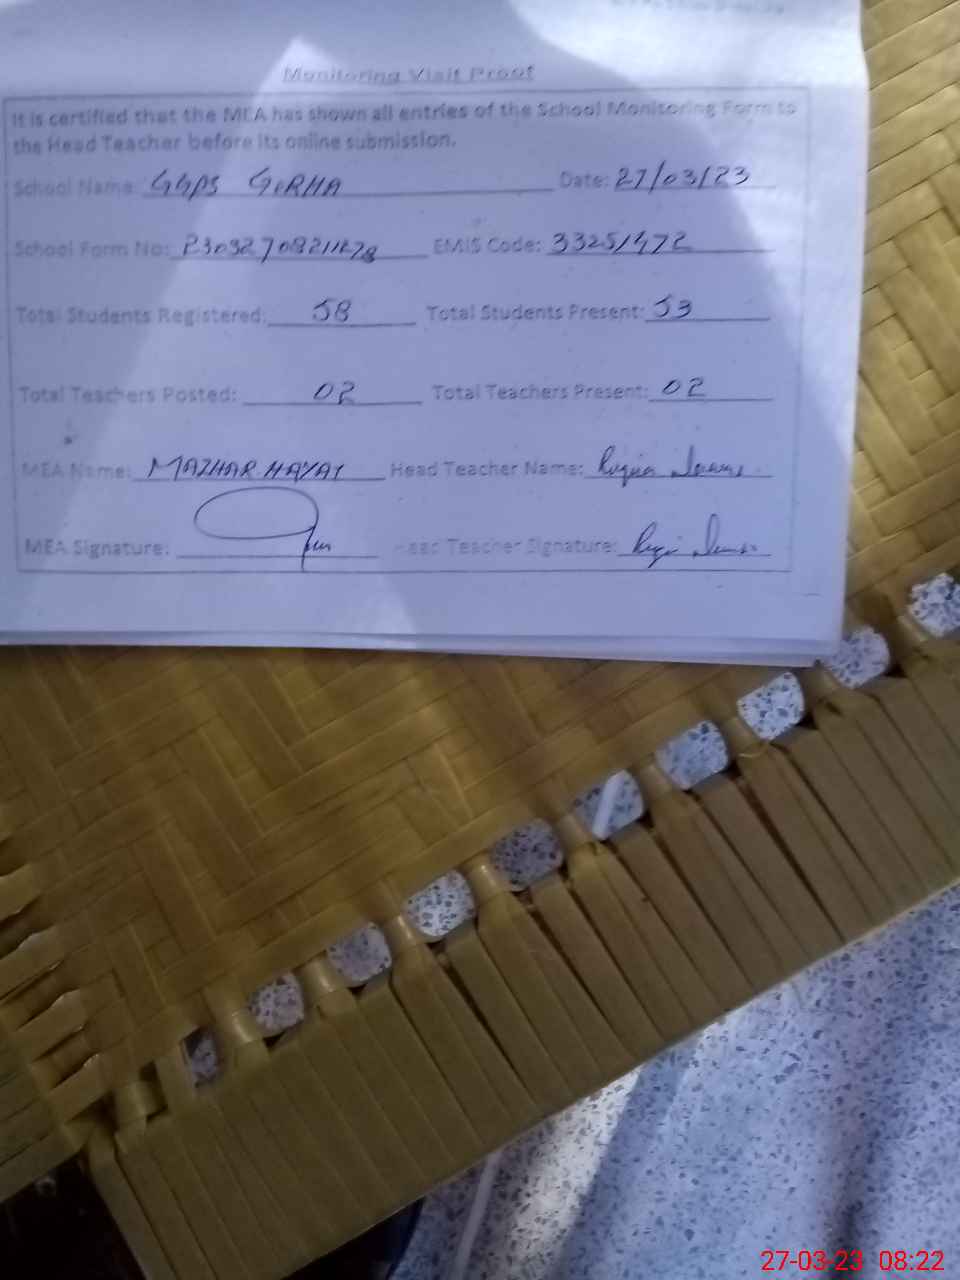 Monitoring Visit Proof
It is certified that the MEA has shown all entries of the School Monitoring Form to
the Head Teacher before its online submission.
School Name: GGPS GORHA Date: 27/03/23
School Form No: EMIS Code: 33251472
Total Students Registered: 58 Total Students Present: 53
Total Teachers Posted: 02 Total Teachers Present: 02
MEA Name: MAZHAR HAYAT Head Teacher Name:
MEA Signature: Head Teacher Signature:
27-03-23 08:22